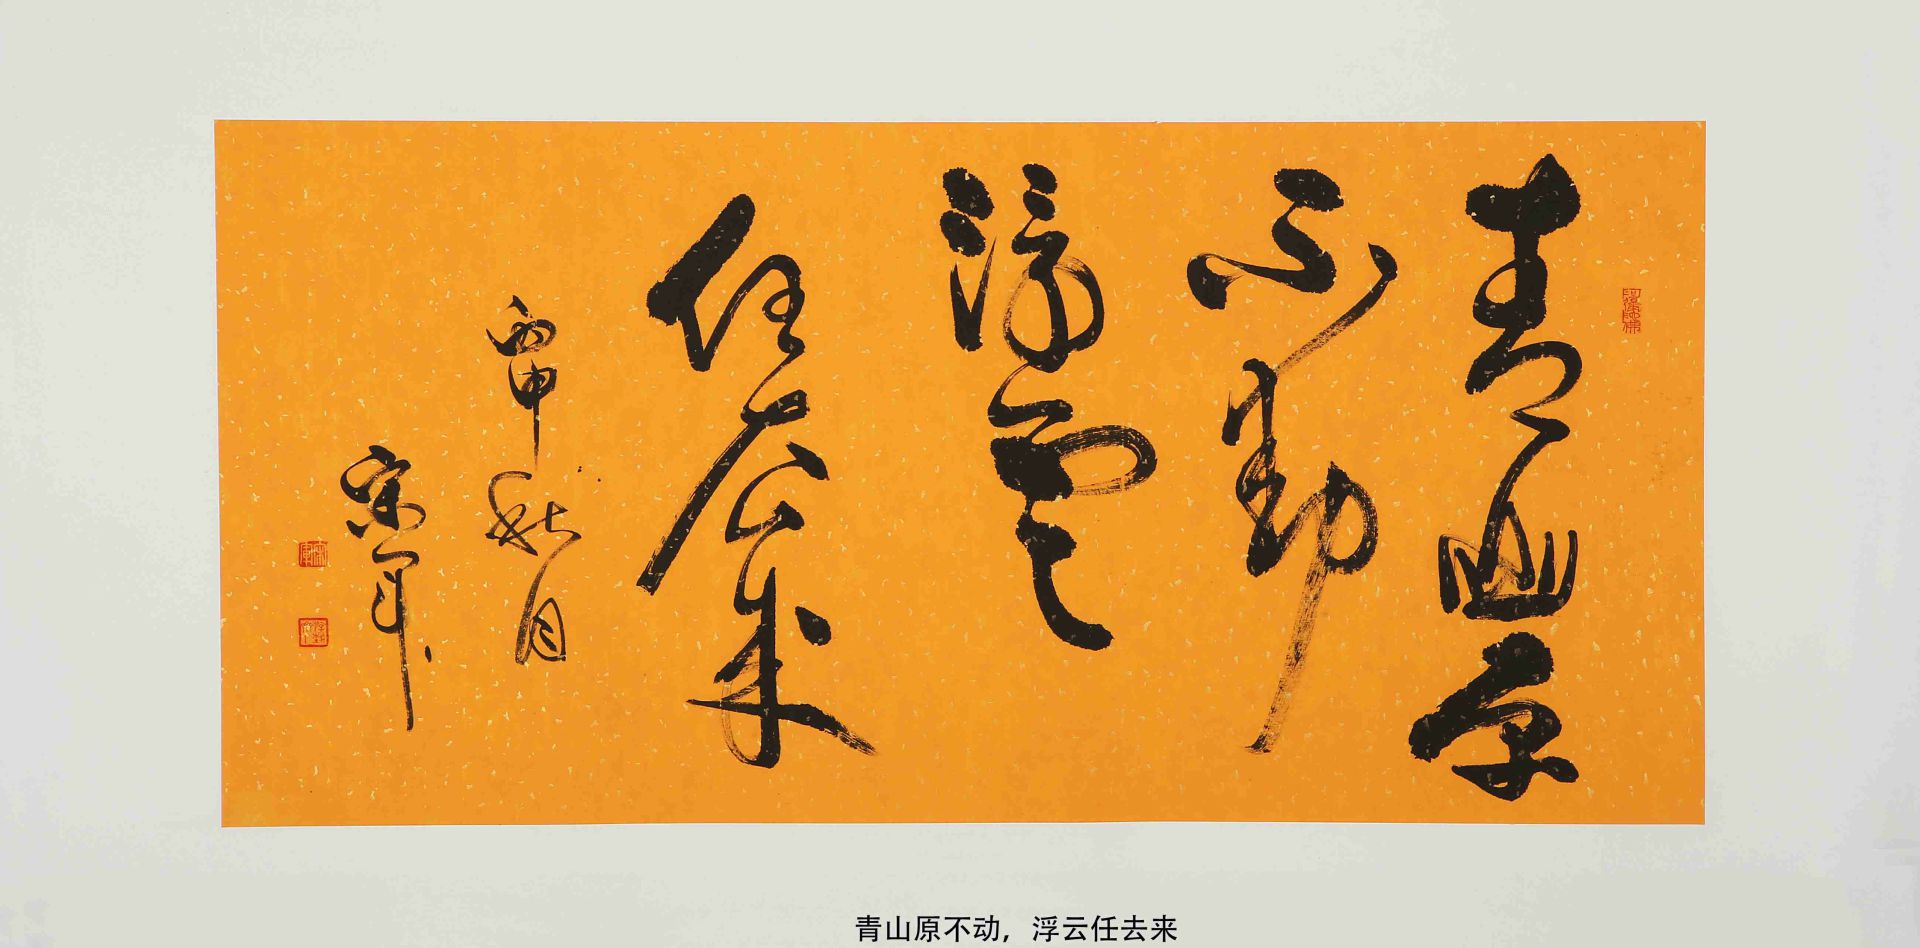 青山原
不動
浮雲
任去来
丙申秋月
宗军
青山原不动，浮云任去来